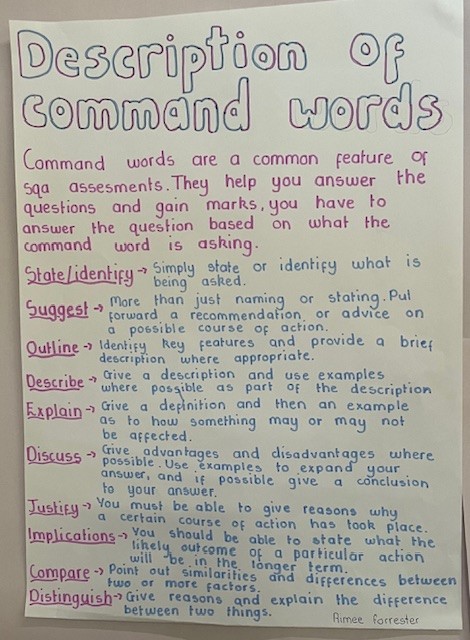 Description of
command words
Command words are a common feature of
sqa assesments. They help you answer the
questions and gain marks, you have to
answer the question based on what the
command word is asking.
State/identify → Simply state or identify what is
being asked.
Suggest → More than just naming or stating. Put
forward a recommendation or advice on
a possible course of action.
Outline → Identify key features and provide a brief
description where appropriate.
Describe → Give a description and use examples
where possible as part of the description
Explain → Give a definition and then an example
as to how something may or may not
be affected.
Discuss → Give advantages and disadvantages where
possible. Use examples to expand your
answer, and if possible give a conclusion
to your answer.
Justify → You must be able to give reasons why
a certain course of action has took place.
Implications → You should be able to state what the
likely outcome of a particular action
will be in the longer term.
Compare → Point out similarities and differences between
two or more factors.
Distinguish → Give reasons and explain the difference
between two things.
Aimee Forrester